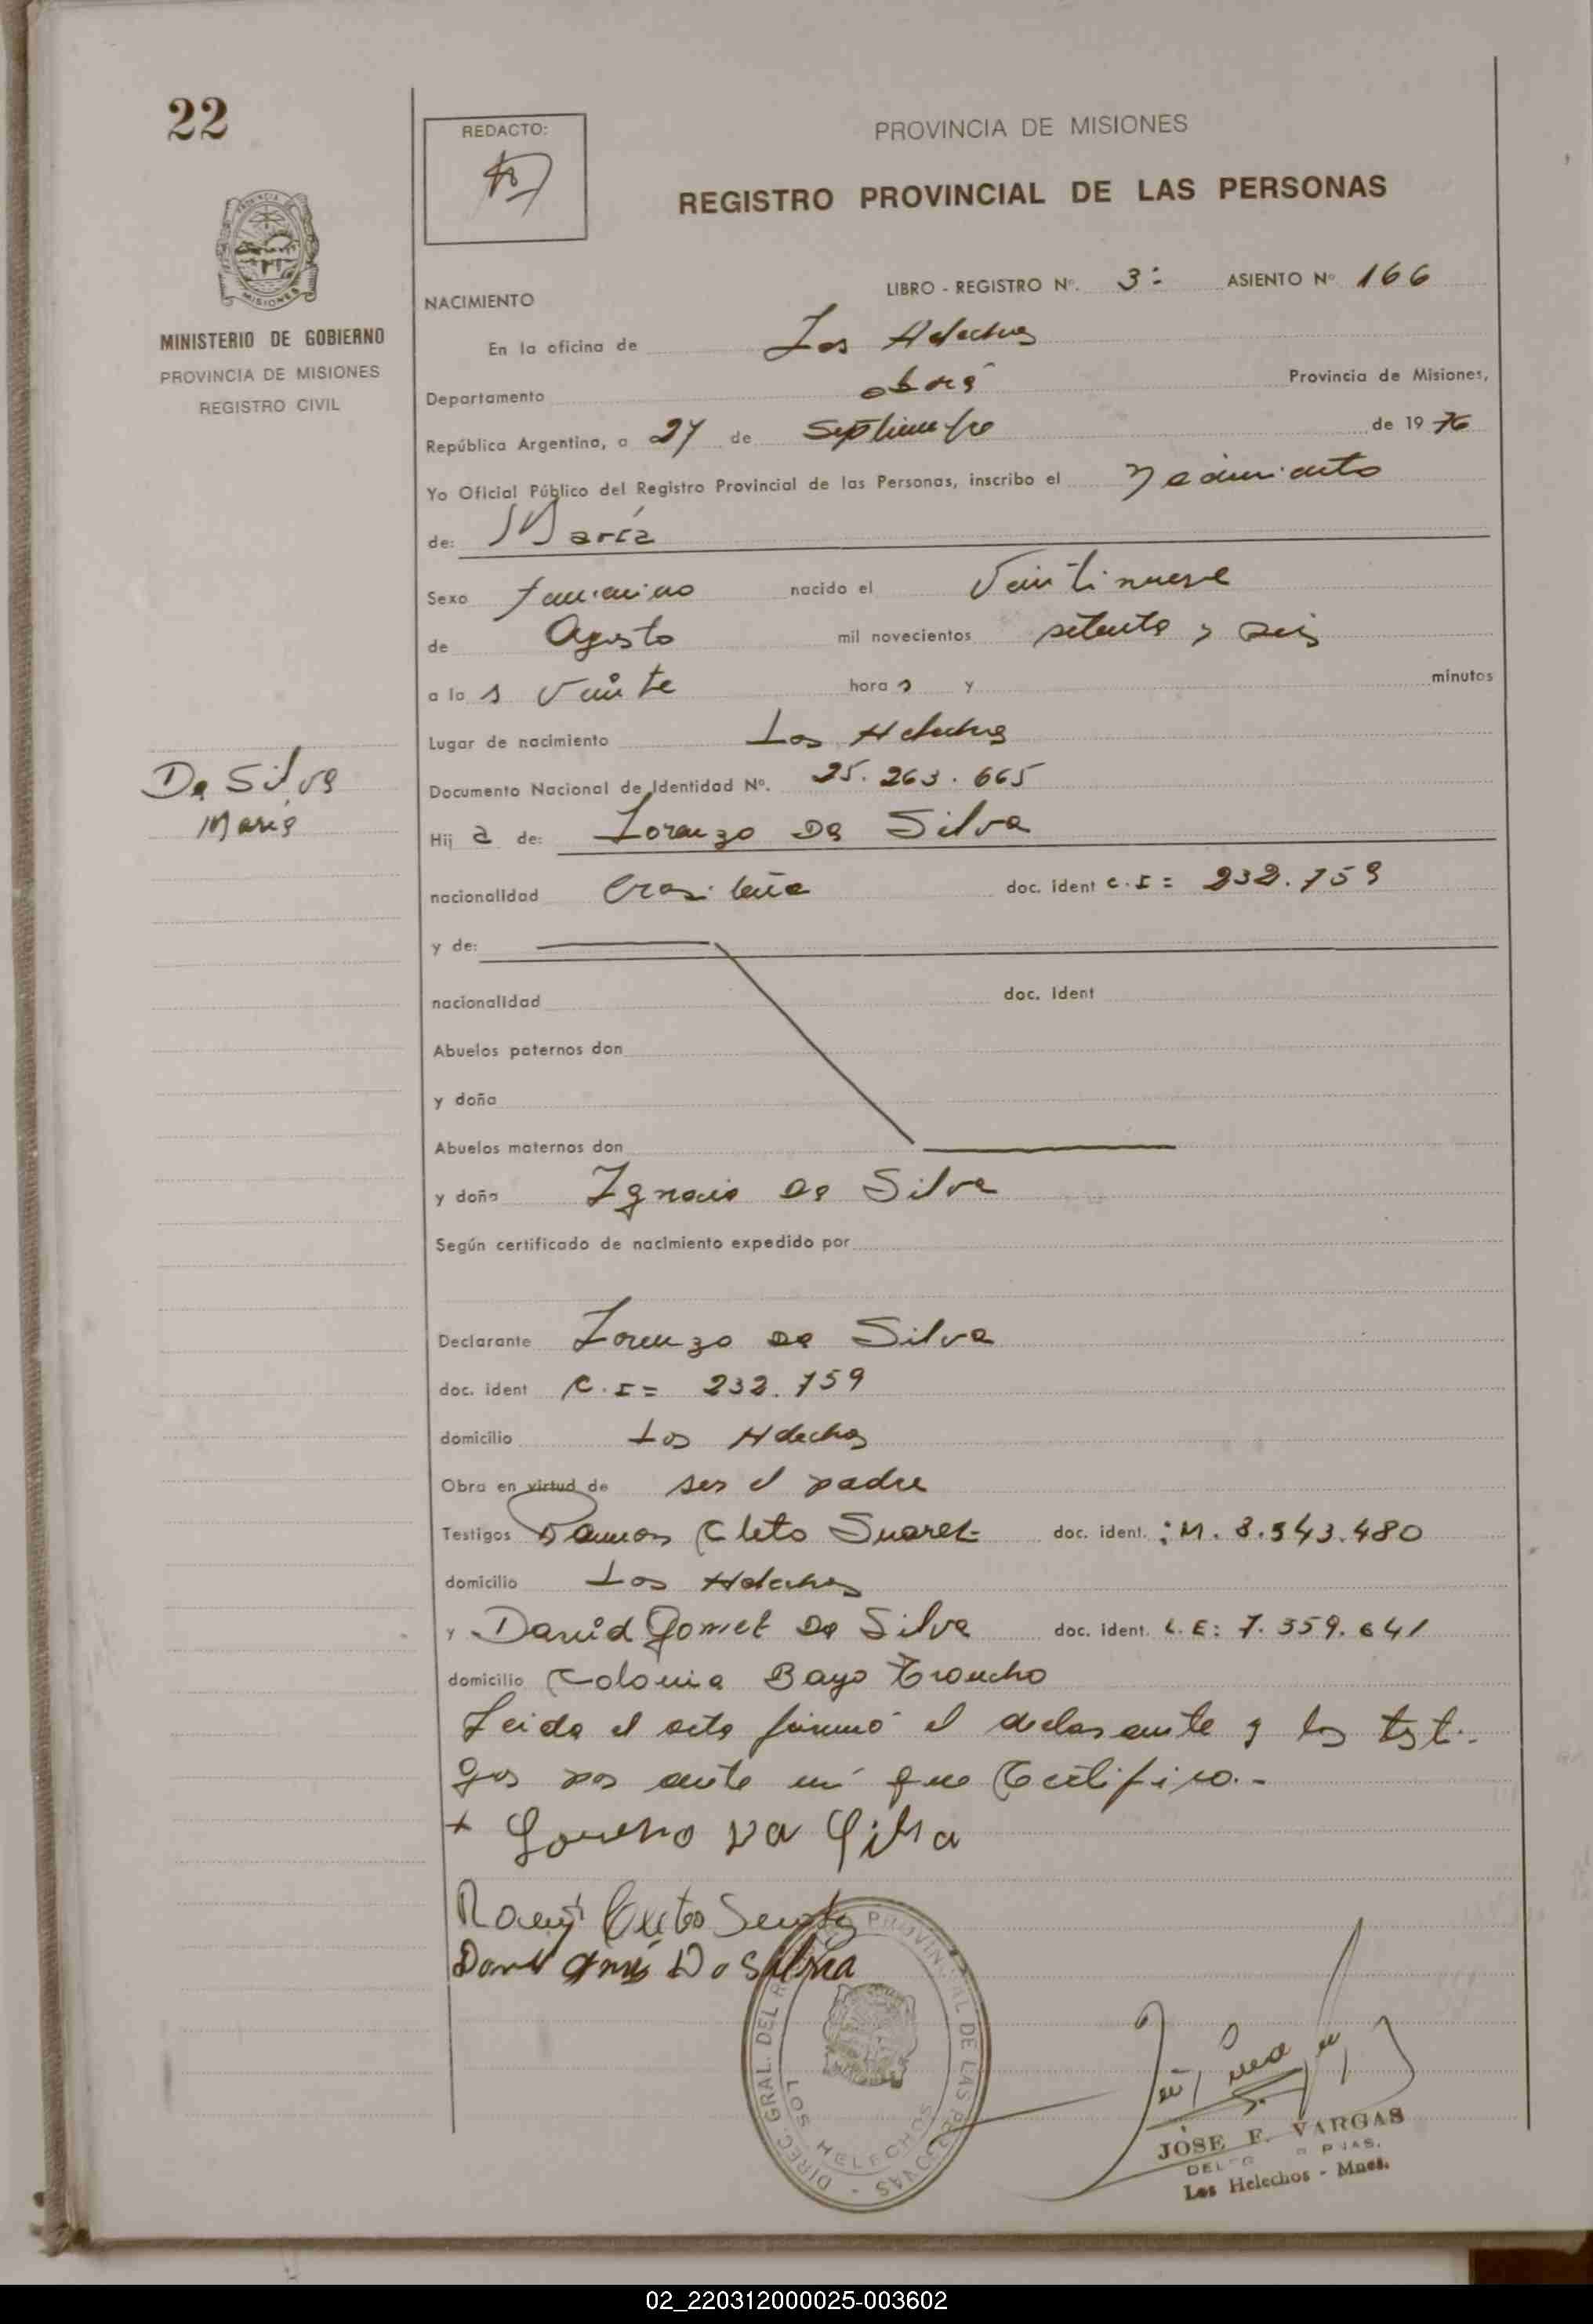 22
REDACTO:
PROVINCIA DE MISIONES
REGISTRO PROVINCIAL DE LAS PERSONAS
MISIONES
MINISTERIO DE GOBIERNO
PROVINCIA DE MISIONES
REGISTRO CIVIL
NACIMIENTO
LIBRO - REGISTRO Nº. 3: ASIENTO Nº 166
En la oficina de Los Helechos
Departamento oberá Provincia de Misiones,
República Argentina, a 27 de Septiembre de 1976
Yo Oficial Público del Registro Provincial de las Personas, inscribo el Nacimiento
de: María
Sexo femenino nacido el Veintinueve
de Agosto mil novecientos setenta y seis
a las Veinte horas y minutos
Lugar de nacimiento Los Helechos
Da Silva
María
Documento Nacional de Identidad Nº. 25.263.665
Hija de: Lorenzo Da Silva
nacionalidad brasileña doc. ident C.I= 232.759
y de:
nacionalidad doc. ident
Abuelos paternos don
y doña
Abuelos maternos don
y doña Ignacia Da Silva
Según certificado de nacimiento expedido por
Declarante Lorenzo Da Silva
doc. ident C.I= 232.759
domicilio Los Helechos
Obra en virtud de ser el padre
Testigos Ramon Cleto Suarez doc. ident. :M. 8.543.480
domicilio Los Helechos
y David Gomez Da Silva doc. ident. L.E: 7.559.641
domicilio Colonia Bayo Troncho
Leida el acta firmó el declarante y los testi-
gos por ante mí que Certifico.-
+ Lorenso Da Silva
Da Silva
DIREC. GRAL. DEL PROVINCIAL DE LAS PERSONAS
LOS HELECHOS
JOSE F. VARGAS
Los Helechos - Mnes.
02_220312000025-003602